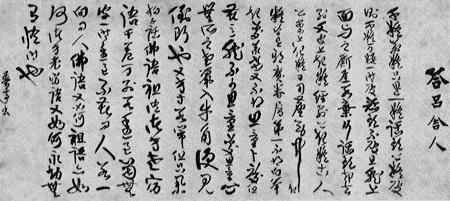 答呂舍人
千疑萬疑只是一疑話頭上疑破
則千疑萬疑一時破話頭不破則且就上
面與之廝崖若棄了話頭却去
別文字上起疑經教上起疑古人
公案上起疑日用塵勞中起
疑皆是邪魔眷屬第一不得向舉
起處承當又不得思量卜度但
著意就不可思量處思量心
無所之老鼠入牛角便見
倒斷也又方寸若鬧但只舉
狗子無字話佛語祖語諸方老宿
語千差萬別若透得箇無
字一時透過不著問人若一
向問人佛語又如何祖語又如
何諸方老宿語又如何永劫無
有悟時也